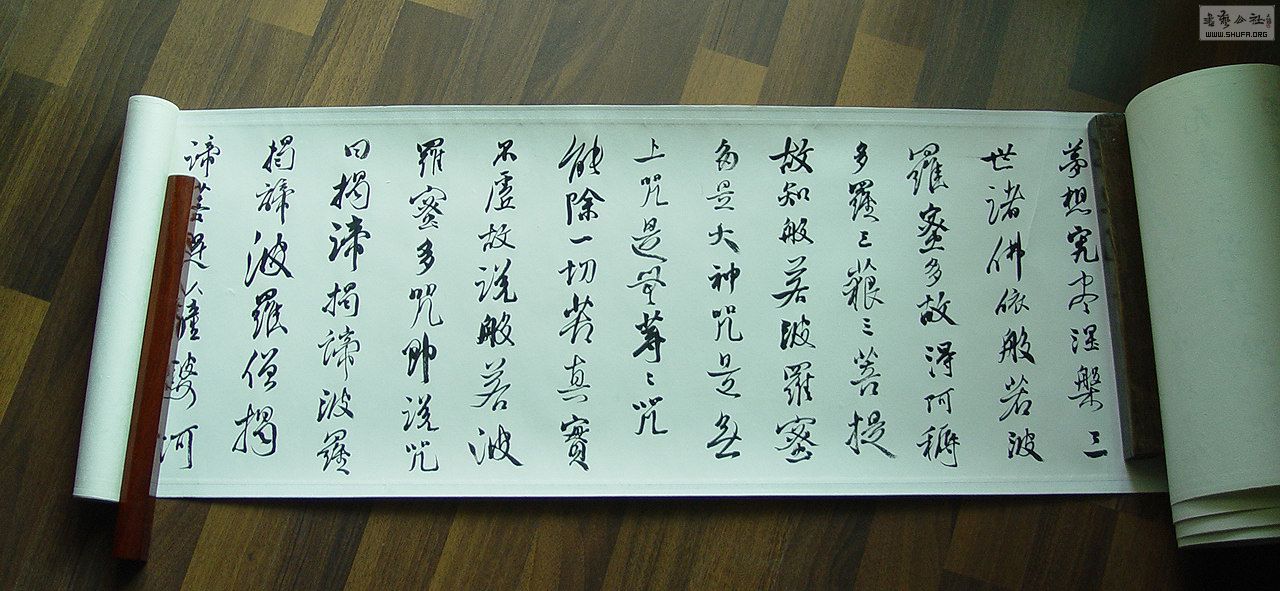 夢想究竟涅槃三
世諸佛依般若波
羅蜜多故得阿耨
多羅三藐三菩提
故知般若波羅蜜
多是大神咒是無
上咒是無等々咒
能除一切苦真實
不虛故說般若波
羅蜜多咒即說咒
曰揭諦揭諦波羅
揭諦波羅僧揭
諦菩提薩婆訶
書藝公社
WWW.SHUFA.ORG